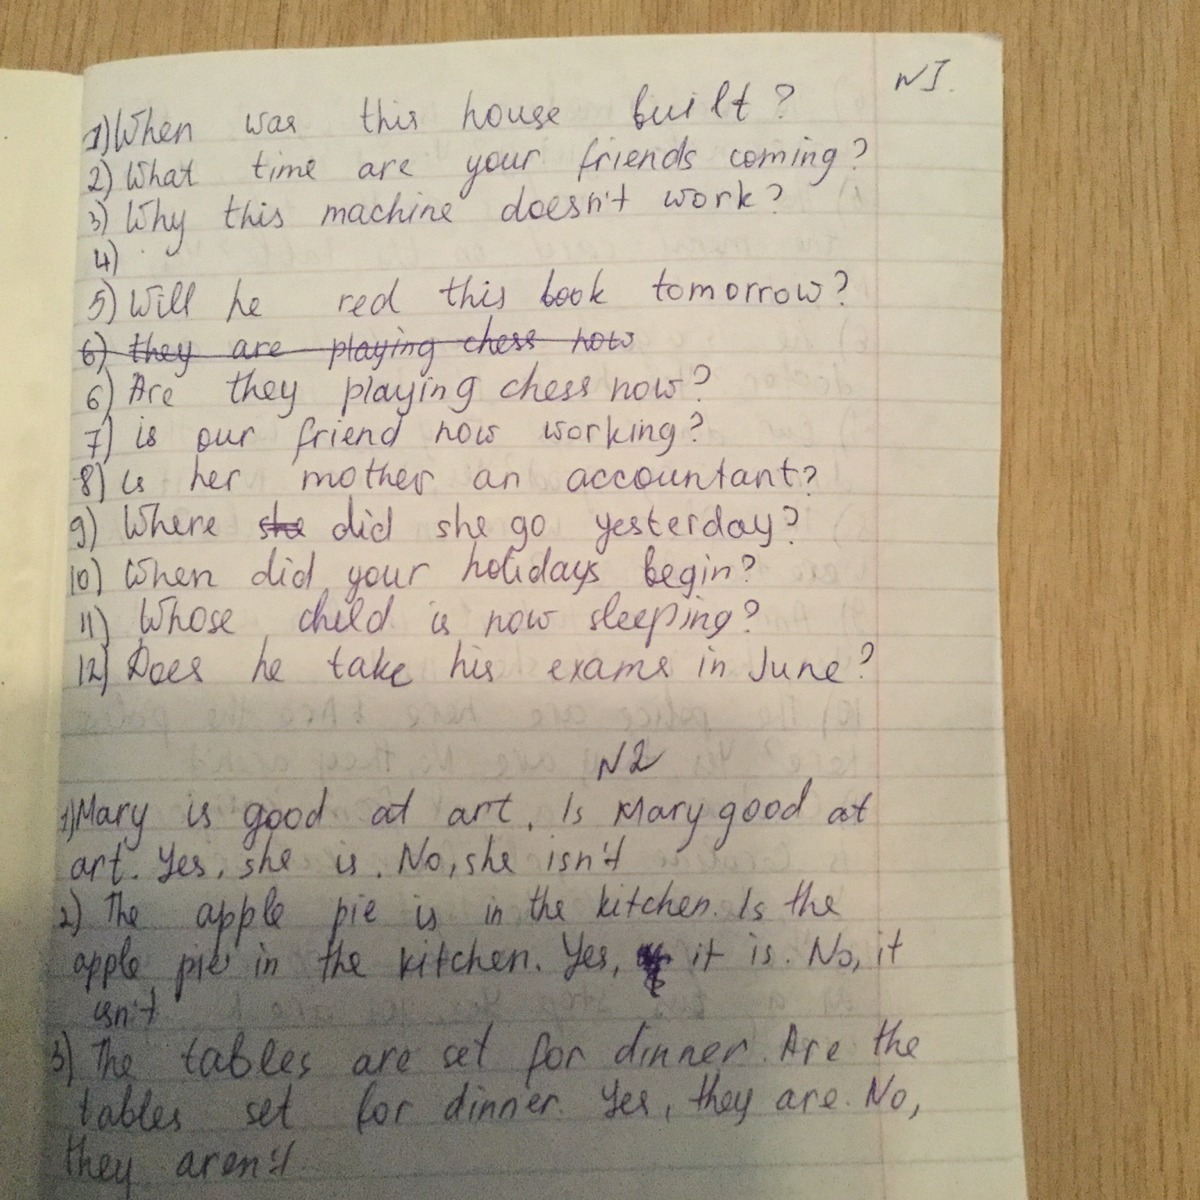 NI.
1) When was this house built?
2) What time are your friends coming?
3) Why this machine doesn't work?
4)
5) Will he red this book tomorrow?
6) they are playing chess now
6) Are they playing chess now?
7) is our friend now working?
8) is her mother an accountant?
9) Where she did she go yesterday?
10) When did your holidays begin?
11) Whose child is now sleeping?
12) Does he take his exams in June?
N2
1) Mary is good at art. Is Mary good at
art. Yes, she is. No, she isn't
2) The apple pie is in the kitchen. Is the
apple pie in the kitchen. Yes, it is. No, it
isn't
3) The tables are set for dinner. Are the
tables set for dinner. Yes, they are. No,
they aren't